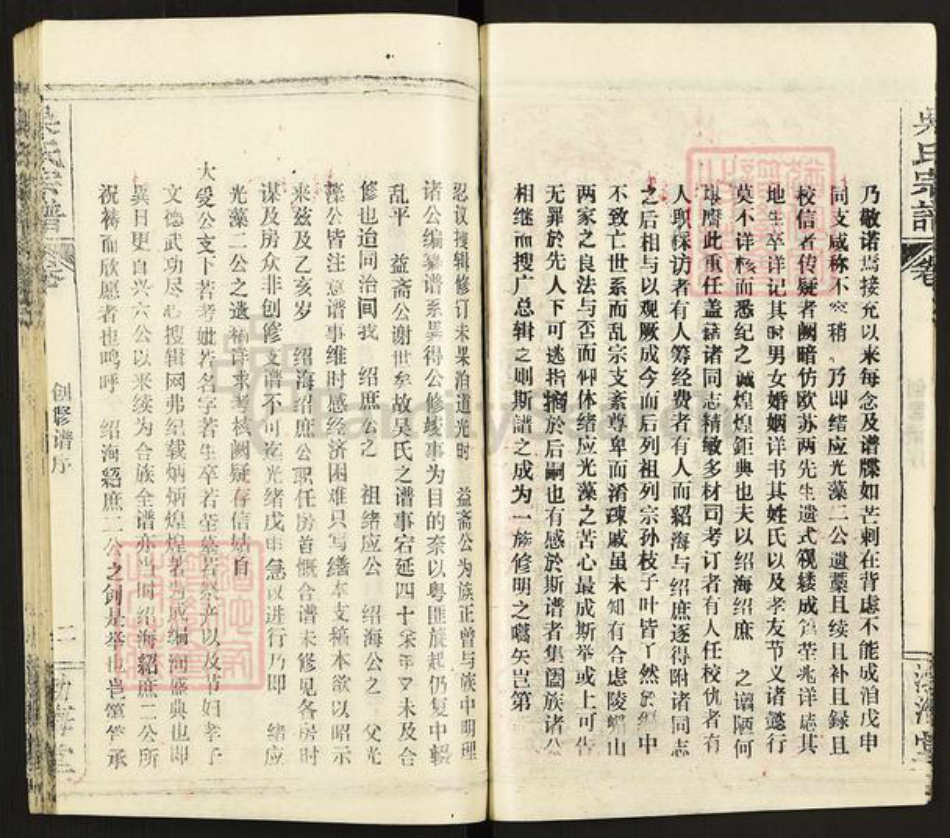 吴氏宗谱
卷
乃敬诺焉接充以来每念及谱牒如芒刺在背虑不能成洎戊申
同支咸称不容稍 乃即绪应光藻二公遗藁且续且补且録且
校信者传疑者阙暗仿欧苏两先生遗式视缕成篇茔兆详志其
地生卒详记其时男女婚姻详书其姓氏以及孝友节义诸懿行
莫不详核而悉纪之诚煌煌鉅典也夫以绍海绍庶 之谫陋何
堪膺此重任盖藉诸同志精敏多材司考订者有人任校仇者有
人职採访者有人筹经费者有人而紹海与绍庶逐得附诸同志
之后相与以观厥成今而后列祖列宗孙枝子叶皆了然於 中
不致亡世系而乱宗支紊尊卑而淆疎戚虽未知有合虑陵 山
两家之良法与否而仰体绪应光藻之苦心最成斯举或上可告
无罪於先人下可逃指摘於后嗣也有感於斯谱者集闔族诸公
相继而搜广总辑之则斯谱之成为一族修明之嚆矢岂第
忍议搜辑修订未果洎道光时 益斋公为族正曾与族中明理
诸公编纂谱系具得公修竣事为目的奈以粤匪旋起仍复中輟
乱平 益斋公谢世矣故吴氏之谱事宕延四十余年又未及合
修也迨同治间我 绍庶公之 祖绪应公 绍海公之 父光
藻公皆注意谱事维时感经济困难只写繕本支稿本欲以昭示
来兹及乙亥岁 绍海绍庶公职任房首慨合谱未修见各房时
谋及房众非创修支谱不可迄光绪戊申急议进行乃即 绪应
光藻二公之遗稿详求考核阙疑存信姑自
大受公支下若考妣若名字若生卒若茔墓若祭产以及节妇孝子
文德武功尽心搜辑网弗纪载炳炳煌煌著为成编洵盛典也即
異日更自兴六公以来续为合族全谱亦当时绍海紹庶二公所
祝祷而欣愿者也呜呼 绍海紹庶二公之创是举也岂笪笪承
吴氏宗谱
卷
创修谱序
二